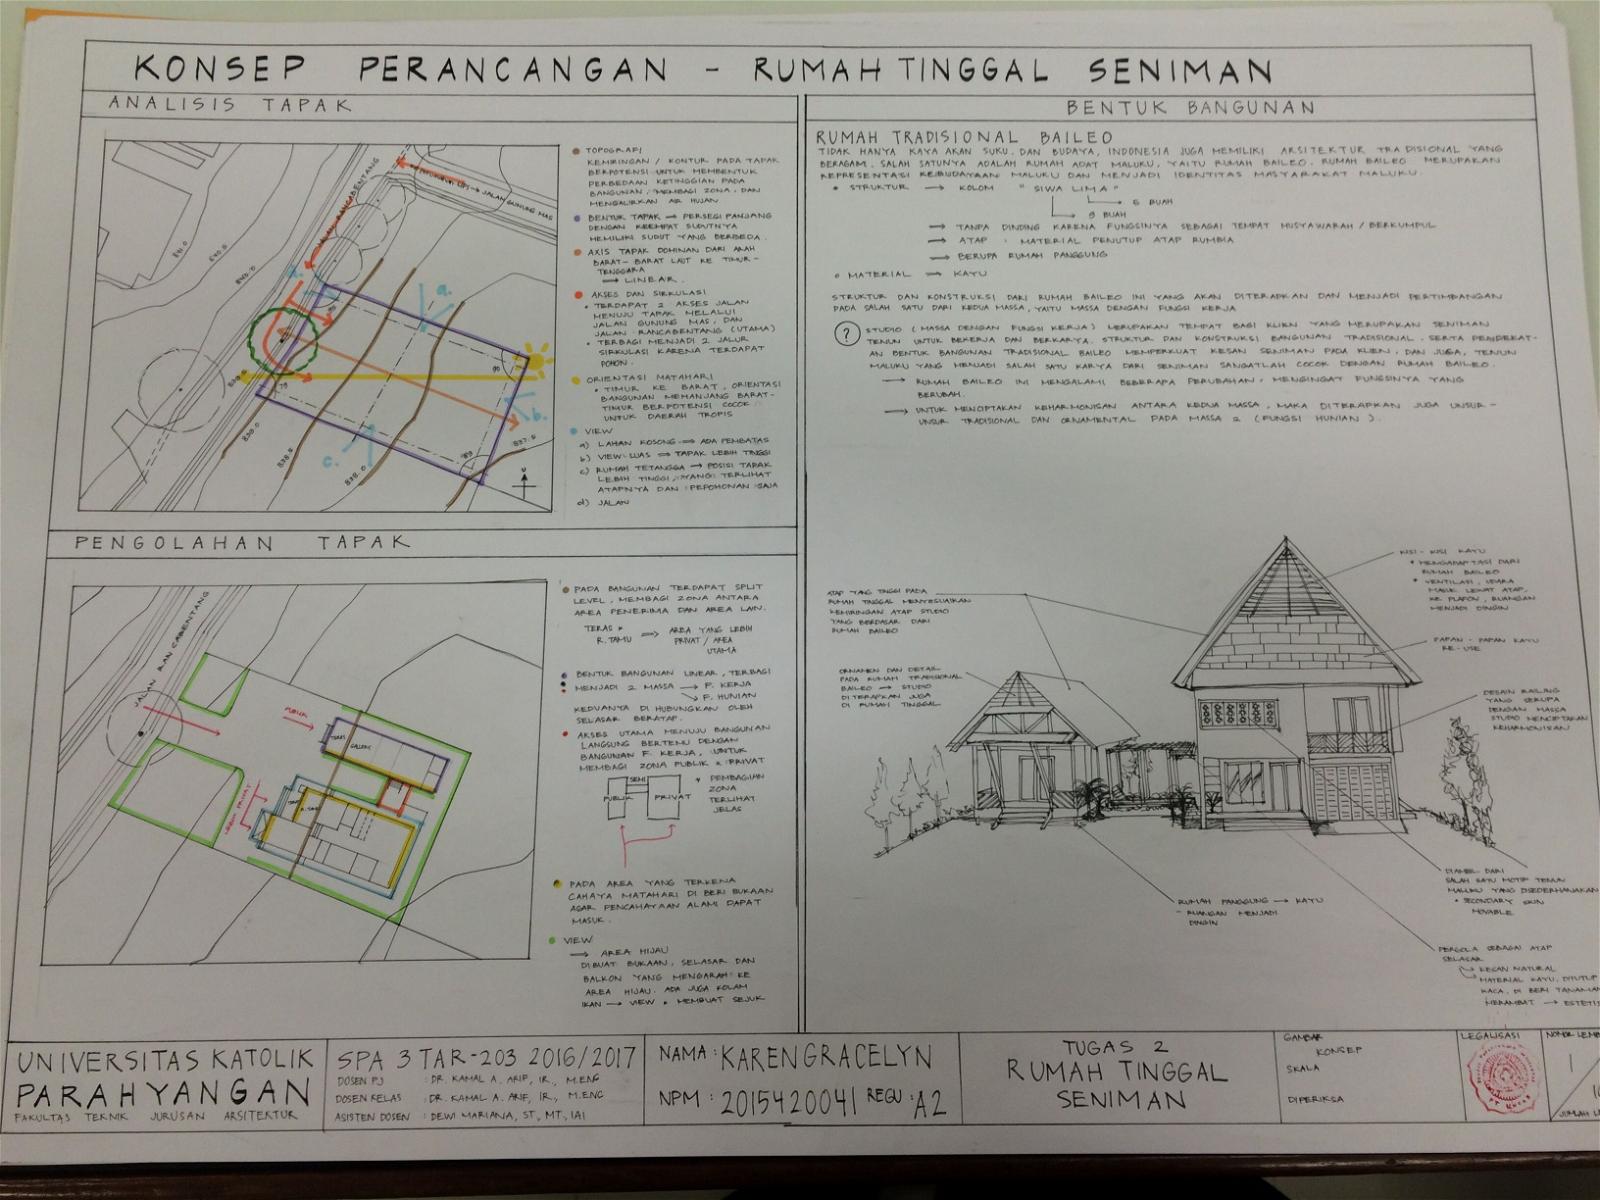 KONSEP PERANCANGAN - RUMAH TINGGAL SENIMAN
ANALISIS TAPAK
JALAN RANCABENTANG
JALAN GUNUNG MAS
840.0
838.0
838.0
838.0
837.5
a.
b.
c.
TOPOGRAFI
KEMIRINGAN / KONTUR PADA TAPAK
BERPOTENSI UNTUK MEMBENTUK
PERBEDAAN KETINGGIAN PADA
BANGUNAN, MEMBAGI ZONA, DAN
MENGALIRKAN AIR HUJAN
BENTUK TAPAK → PERSEGI PANJANG
DENGAN KEEMPAT SUDUTNYA
MEMILIKI SUDUT YANG BERBEDA.
AXIS TAPAK DOMINAN DARI ARAH
BARAT - BARAT LAUT KE TIMUR -
TENGGARA
→ LINEAR.
AKSES DAN SIRKULASI
• TERDAPAT 2 AKSES JALAN
MENUJU TAPAK MELALUI
JALAN GUNUNG MAS, DAN
JALAN RANCABENTANG (UTAMA)
• TERBAGI MENJADI 2 JALUR
SIRKULASI KARENA TERDAPAT
POHON.
ORIENTASI MATAHARI
• TIMUR KE BARAT, ORIENTASI
BANGUNAN MEMANJANG BARAT-
TIMUR BERPOTENSI COCOK
UNTUK DAERAH TROPIS
VIEW
a) LAHAN KOSONG → ADA PEMBATAS
b) VIEW LUAS → TAPAK LEBIH TINGGI
c) RUMAH TETANGGA → POSISI TAPAK
LEBIH TINGGI, YANG TERLIHAT
ATAPNYA DAN PEPOHONAN SAJA
d) JALAN
PENGOLAHAN TAPAK
JALAN RANCABENTANG
PUBLIK
TERAS
GALLERY
LEBIH PRIVAT
PADA BANGUNAN TERDAPAT SPLIT
LEVEL, MEMBAGI ZONA ANTARA
AREA PENERIMA DAN AREA LAIN.
TERAS &
R. TAMU → AREA YANG LEBIH
PRIVAT / AREA
UTAMA
BENTUK BANGUNAN LINEAR, TERBAGI
MENJADI 2 MASSA → F. KERJA
→ F. HUNIAN
KEDUANYA DI HUBUNGKAN OLEH
SELASAR BERATAP.
AKSES UTAMA MENUJU BANGUNAN
LANGSUNG BERTEMU DENGAN
BANGUNAN F. KERJA, UNTUK
MEMBAGI ZONA PUBLIK & PRIVAT
PUBLIK
SEMI
PRIVAT
* PEMBAGIAN
ZONA
TERLIHAT
JELAS
PADA AREA YANG TERKENA
CAHAYA MATAHARI DI BERI BUKAAN
AGAR PENCAHAYAAN ALAMI DAPAT
MASUK.
VIEW
→ AREA HIJAU
DIBUAT BUKAAN, SELASAR DAN
BALKON YANG MENGARAH KE
AREA HIJAU. ADA JUGA KOLAM
IKAN → VIEW & MEMBUAT SEJUK
BENTUK BANGUNAN
RUMAH TRADISIONAL BAILEO
TIDAK HANYA KAYA AKAN SUKU DAN BUDAYA, INDONESIA JUGA MEMILIKI ARSITEKTUR TRADISIONAL YANG
BERAGAM. SALAH SATUNYA ADALAH RUMAH ADAT MALUKU, YAITU RUMAH BAILEO. RUMAH BAILEO MERUPAKAN
REPRESENTASI KEBUDAYAAN MALUKU DAN MENJADI IDENTITAS MASYARAKAT MALUKU.
• STRUKTUR → KOLOM "SIWA LIMA"
5 BUAH
9 BUAH
→ TANPA DINDING KARENA FUNGSINYA SEBAGAI TEMPAT MUSYAWARAH / BERKUMPUL
→ ATAP : MATERIAL PENUTUP ATAP RUMBIA
→ BERUPA RUMAH PANGGUNG
• MATERIAL → KAYU
STRUKTUR DAN KONSTRUKSI DARI RUMAH BAILEO INI YANG AKAN DITERAPKAN DAN MENJADI PERTIMBANGAN
PADA SALAH SATU DARI KEDUA MASSA, YAITU MASSA DENGAN FUNGSI KERJA
? STUDIO (MASSA DENGAN FUNGSI KERJA) MERUPAKAN TEMPAT BAGI KLIEN YANG MERUPAKAN SENIMAN
TENUN UNTUK BEKERJA DAN BERKARYA. STRUKTUR DAN KONSTRUKSI BANGUNAN TRADISIONAL SERTA PENDEKAT-
AN BENTUK BANGUNAN TRADISIONAL BAILEO MEMPERKUAT KESAN SENIMAN PADA KLIEN, DAN JUGA, TENUN
MALUKU YANG MENJADI SALAH SATU KARYA DARI SENIMAN SANGATLAH COCOK DENGAN RUMAH BAILEO.
→ RUMAH BAILEO INI MENGALAMI BEBERAPA PERUBAHAN, MENGINGAT FUNGSINYA YANG
BERUBAH.
→ UNTUK MENCIPTAKAN KEHARMONISAN ANTARA KEDUA MASSA, MAKA DITERAPKAN JUGA UNSUR-
UNSUR TRADISIONAL DAN ORNAMENTAL PADA MASSA 2 (FUNGSI HUNIAN).
ATAP YANG TINGGI PADA
RUMAH TINGGAL MENYESUAIKAN
KEMIRINGAN ATAP STUDIO
YANG BERDASAR DARI
RUMAH BAILEO
ORNAMEN DAN DETAIL
PADA RUMAH TRADISIONAL
BAILEO → STUDIO
DITERAPKAN JUGA
DI RUMAH TINGGAL
KISI - KISI KAYU
• MENGADAPTASI DARI
RUMAH BAILEO
• VENTILASI, UDARA
MASUK LEWAT ATAP,
KE PLAFON, RUANGAN
MENJADI DINGIN
PAPAN - PAPAN KAYU
RE-USE
DESAIN RAILING
YANG SERUPA
DENGAN MASSA
STUDIO MENCIPTAKAN
KEHARMONISAN
DIAMBIL DARI
SALAH SATU MOTIF TENUN
MALUKU YANG DISEDERHANAKAN
• SECONDARY SKIN
MOVABLE
RUMAH PANGGUNG → KAYU
- RUANGAN MENJADI
DINGIN
PERGOLA SEBAGAI ATAP
SELASAR
KESAN NATURAL
MATERIAL KAYU, DITUTUP
KACA, DI BERI TANAMAN
MERAMBAT → ESTETI
UNIVERSITAS KATOLIK
PARAHYANGAN
FAKULTAS TEKNIK JURUSAN ARSITEKTUR
SPA 3 TAR-203 2016/2017
DOSEN PJ : DR. KAMAL A. ARIF, IR., M.ENG
DOSEN KELAS : DR. KAMAL A. ARIF, IR., M.ENG
ASISTEN DOSEN : DEWI MARIANA, ST, MT, IAI
NAMA : KAREN GRACELYN
NPM : 2015420041 REGU : A2
TUGAS 2
RUMAH TINGGAL
SENIMAN
GAMBAR
KONSEP
SKALA
DIPERIKSA
LEGALISASI
NOMOR LEMB
1
JUMLAH L